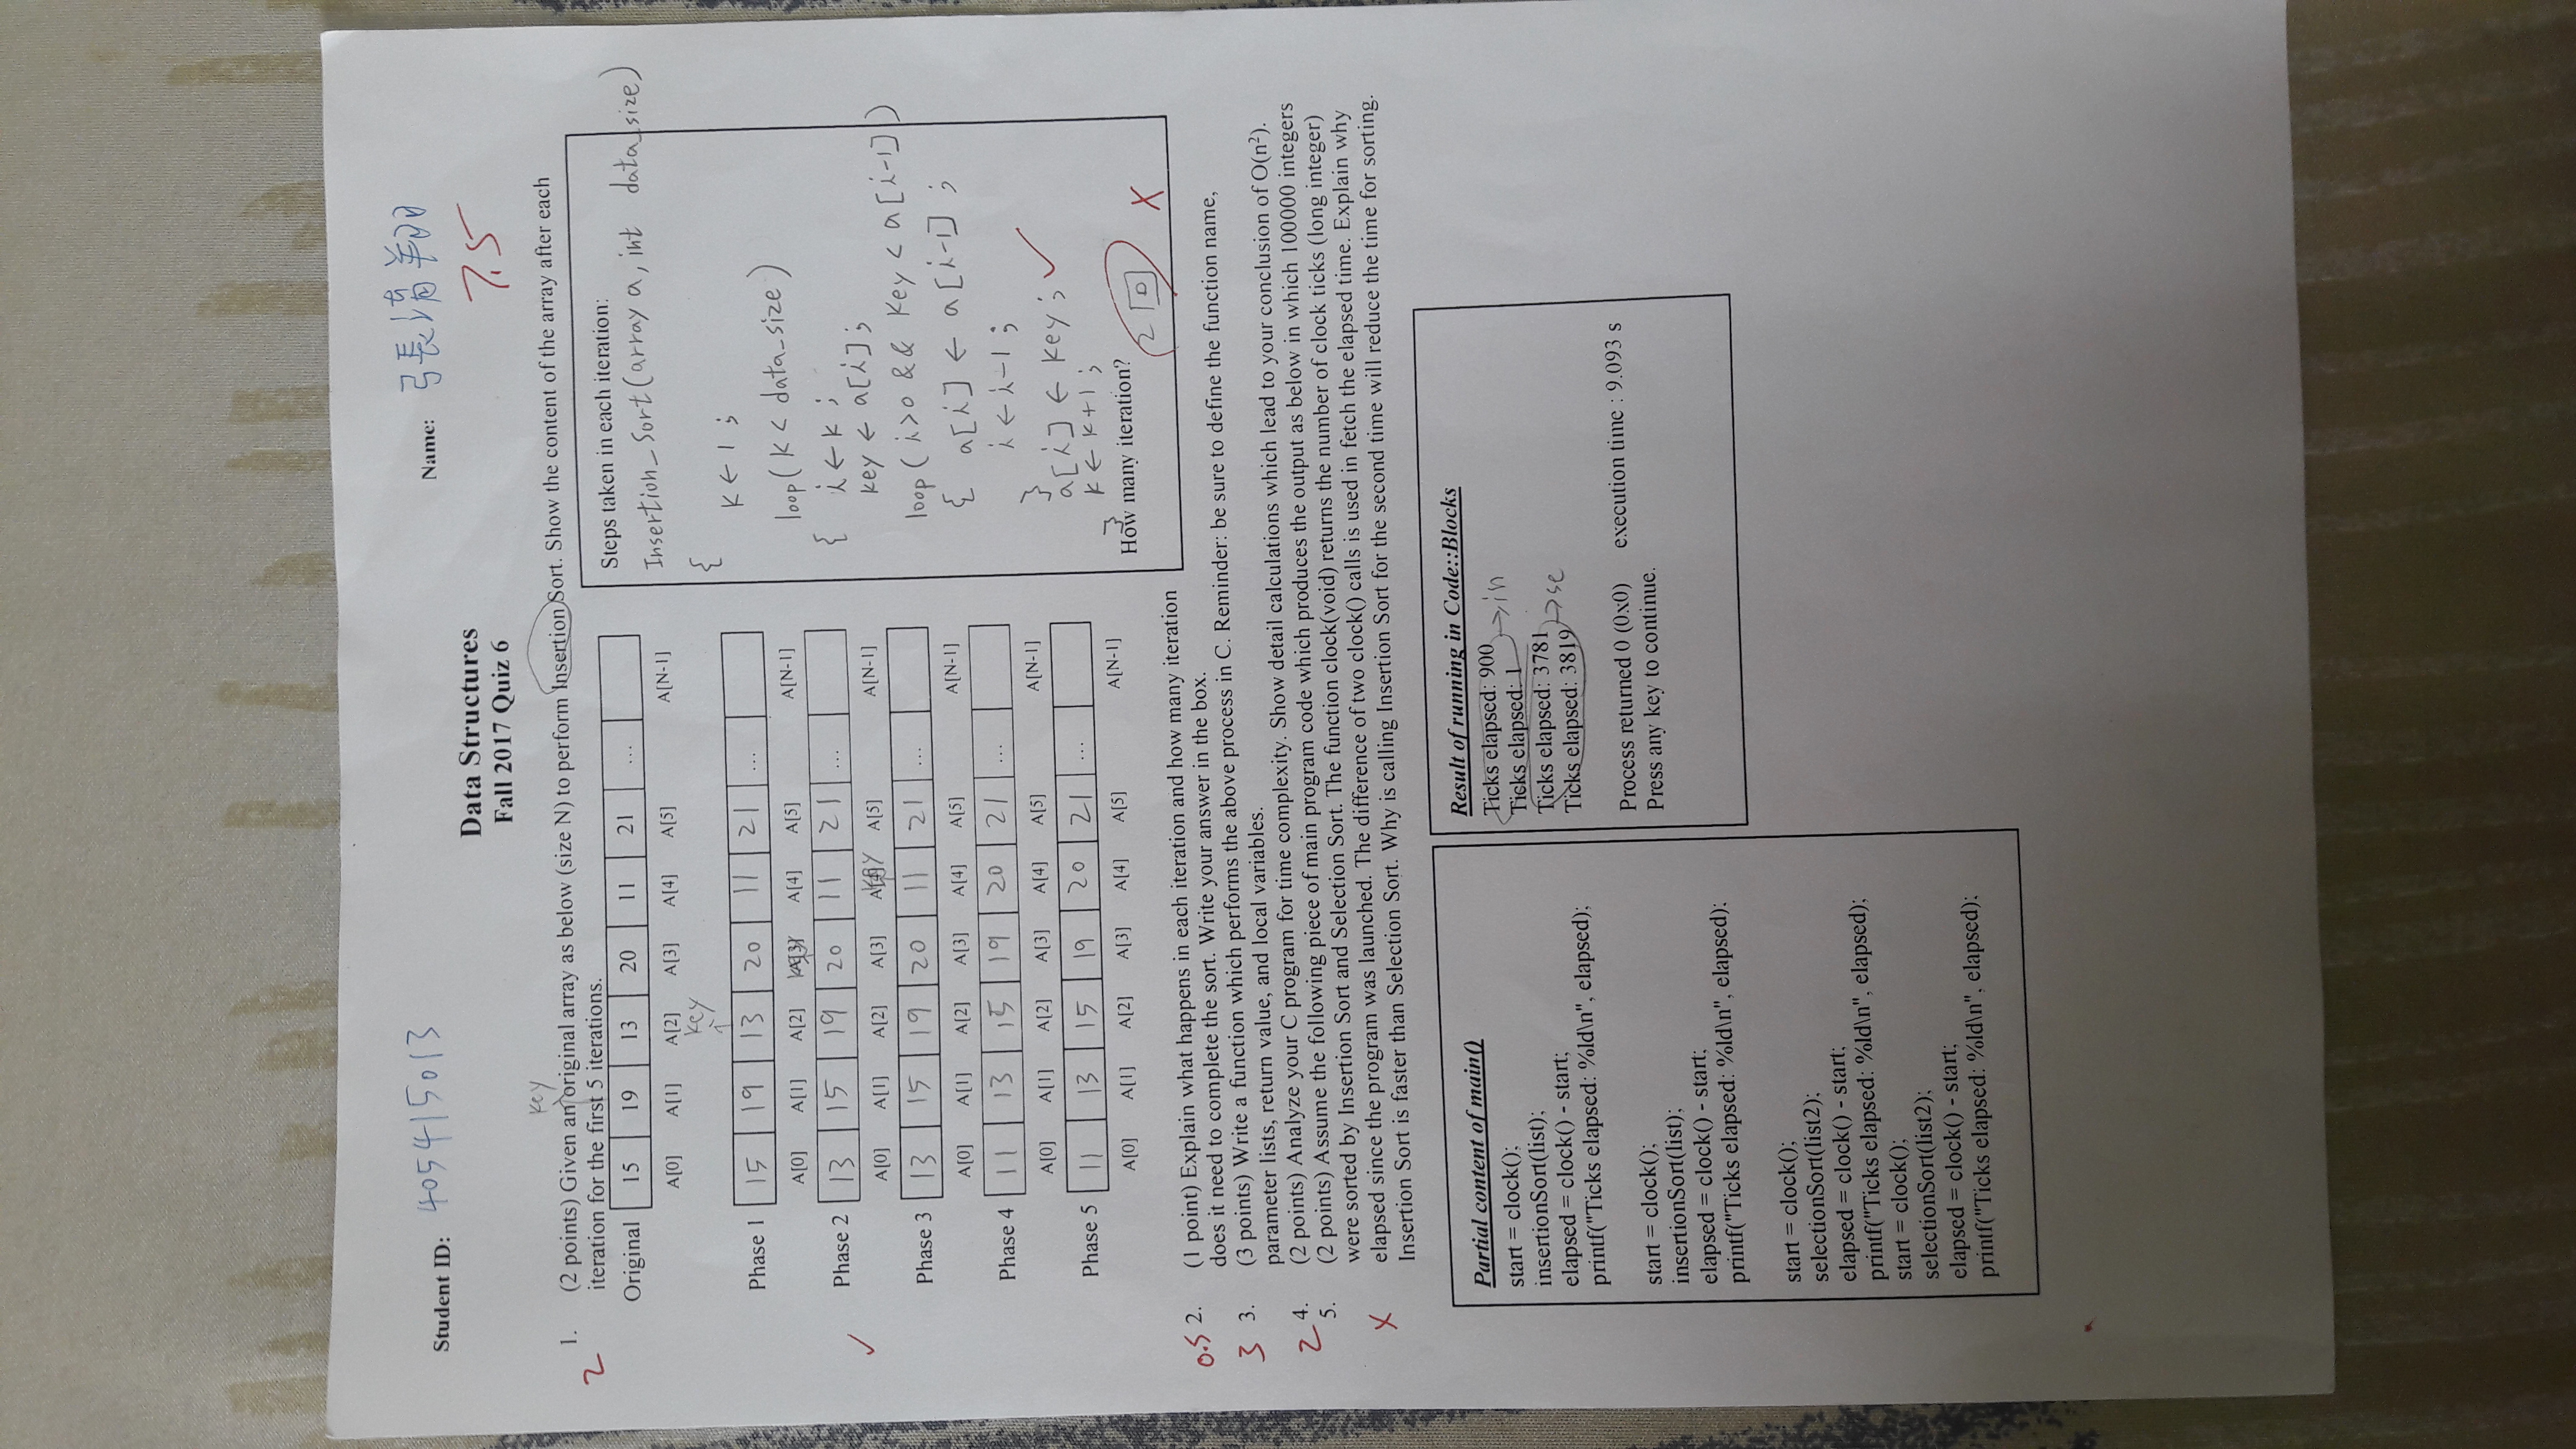 Student ID: 405415013 Name: 張清翔
7.5
Data Structures
Fall 2017 Quiz 6
key
1. (2 points) Given an original array as below (size N) to perform Insertion Sort. Show the content of the array after each
2
iteration for the first 5 iterations.
Original 15 19 13 20 11 21 ...
A[0] A[1] A[2] A[3] A[4] A[5] A[N-1]
key
Phase 1 15 19 13 20 11 21 ...
A[0] A[1] A[2] A[3] A[4] A[5] A[N-1]
Phase 2 13 15 19 20 11 21 ...
A[0] A[1] A[2] A[3] A[4] A[5] A[N-1]
Phase 3 13 15 19 20 11 21 ...
A[0] A[1] A[2] A[3] A[4] A[5] A[N-1]
Phase 4 11 13 15 19 20 21 ...
A[0] A[1] A[2] A[3] A[4] A[5] A[N-1]
Phase 5 11 13 15 19 20 21 ...
A[0] A[1] A[2] A[3] A[4] A[5] A[N-1]
Steps taken in each iteration:
Insertion_Sort(array a, int data_size)
{
k ← 1 ;
loop( k < data_size )
{ i ← k ;
key ← a[i] ;
loop( i>0 && key < a[i-1] )
{ a[i] ← a[i-1] ;
i ← i-1 ;
}
a[i] ← key ; ✓
k ← k+1 ;
}
How many iteration?
2 X
0.5 2. (1 point) Explain what happens in each iteration and how many iteration
does it need to complete the sort. Write your answer in the box.
3 3. (3 points) Write a function which performs the above process in C. Reminder: be sure to define the function name,
parameter lists, return value, and local variables.
2 4. (2 points) Analyze your C program for time complexity. Show detail calculations which lead to your conclusion of O(n²).
5. (2 points) Assume the following piece of main program code which produces the output as below in which 100000 integers
were sorted by Insertion Sort and Selection Sort. The function clock(void) returns the number of clock ticks (long integer)
X elapsed since the program was launched. The difference of two clock() calls is used in fetch the elapsed time. Explain why
Insertion Sort is faster than Selection Sort. Why is calling Insertion Sort for the second time will reduce the time for sorting.
Partial content of main()
start = clock();
insertionSort(list);
elapsed = clock() - start;
printf("Ticks elapsed: %ld\n", elapsed);
start = clock();
insertionSort(list);
elapsed = clock() - start;
printf("Ticks elapsed: %ld\n", elapsed);
start = clock();
selectionSort(list2);
elapsed = clock() - start;
printf("Ticks elapsed: %ld\n", elapsed);
start = clock();
selectionSort(list2);
elapsed = clock() - start;
printf("Ticks elapsed: %ld\n", elapsed);
Result of running in Code::Blocks
Ticks elapsed: 900
→ in
Ticks elapsed: 1
Ticks elapsed: 3781
→ se
Ticks elapsed: 3819
Process returned 0 (0x0) execution time : 9.093 s
Press any key to continue.